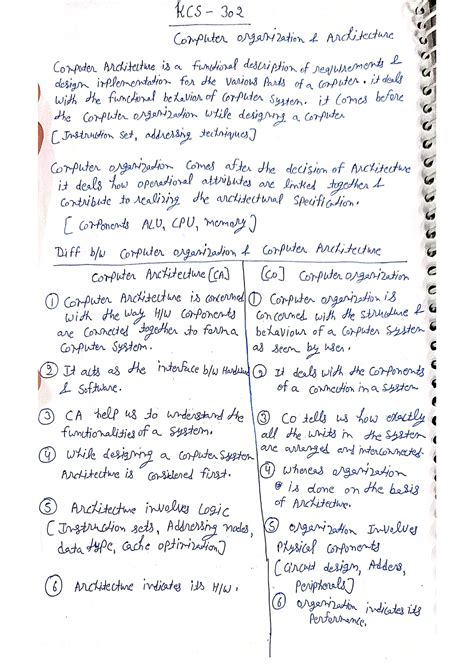 KCS - 302
Computer organization & Architecture
Computer Architecture is a functional description of requirements &
design implementation for the various parts of a computer. it deals
with the functional behavior of computer system. it comes before
the computer organization while designing a computer
[Instruction set, addressing techniques]
Computer organization comes after the decision of Architecture
it deals how operational attributes are linked together &
contribute to realizing the architectural specification.
[Components ALU, CPU, memory]
Diff b/w Computer organization & Computer Architecture
Computer Architecture [CA]
① Computer Architecture is concerned
with the way H/W components
are connected together to form a
Computer System.
② It acts as the interface b/w Hardware
& Software.
③ CA help us to understand the
functionalities of a system.
④ While designing a computer system
Architecture is considered first.
⑤ Architecture involves Logic
[Instruction sets, Addressing modes,
data type, cache optimization]
⑥ Architecture indicates its H/W.
[CO] Computer organization
① Computer organization is
concerned with the structure &
behaviour of a computer system
as seen by user.
② It deals with the components
of a connection in a system
③ CO tells us how exactly
all the units in the system
are arranged and interconnected.
④ whereas organization
is done on the basis
of Architecture.
⑤ organization Involves
Physical components
[Circuit design, Adders,
Peripherals]
⑥ organization indicates its
Performance.